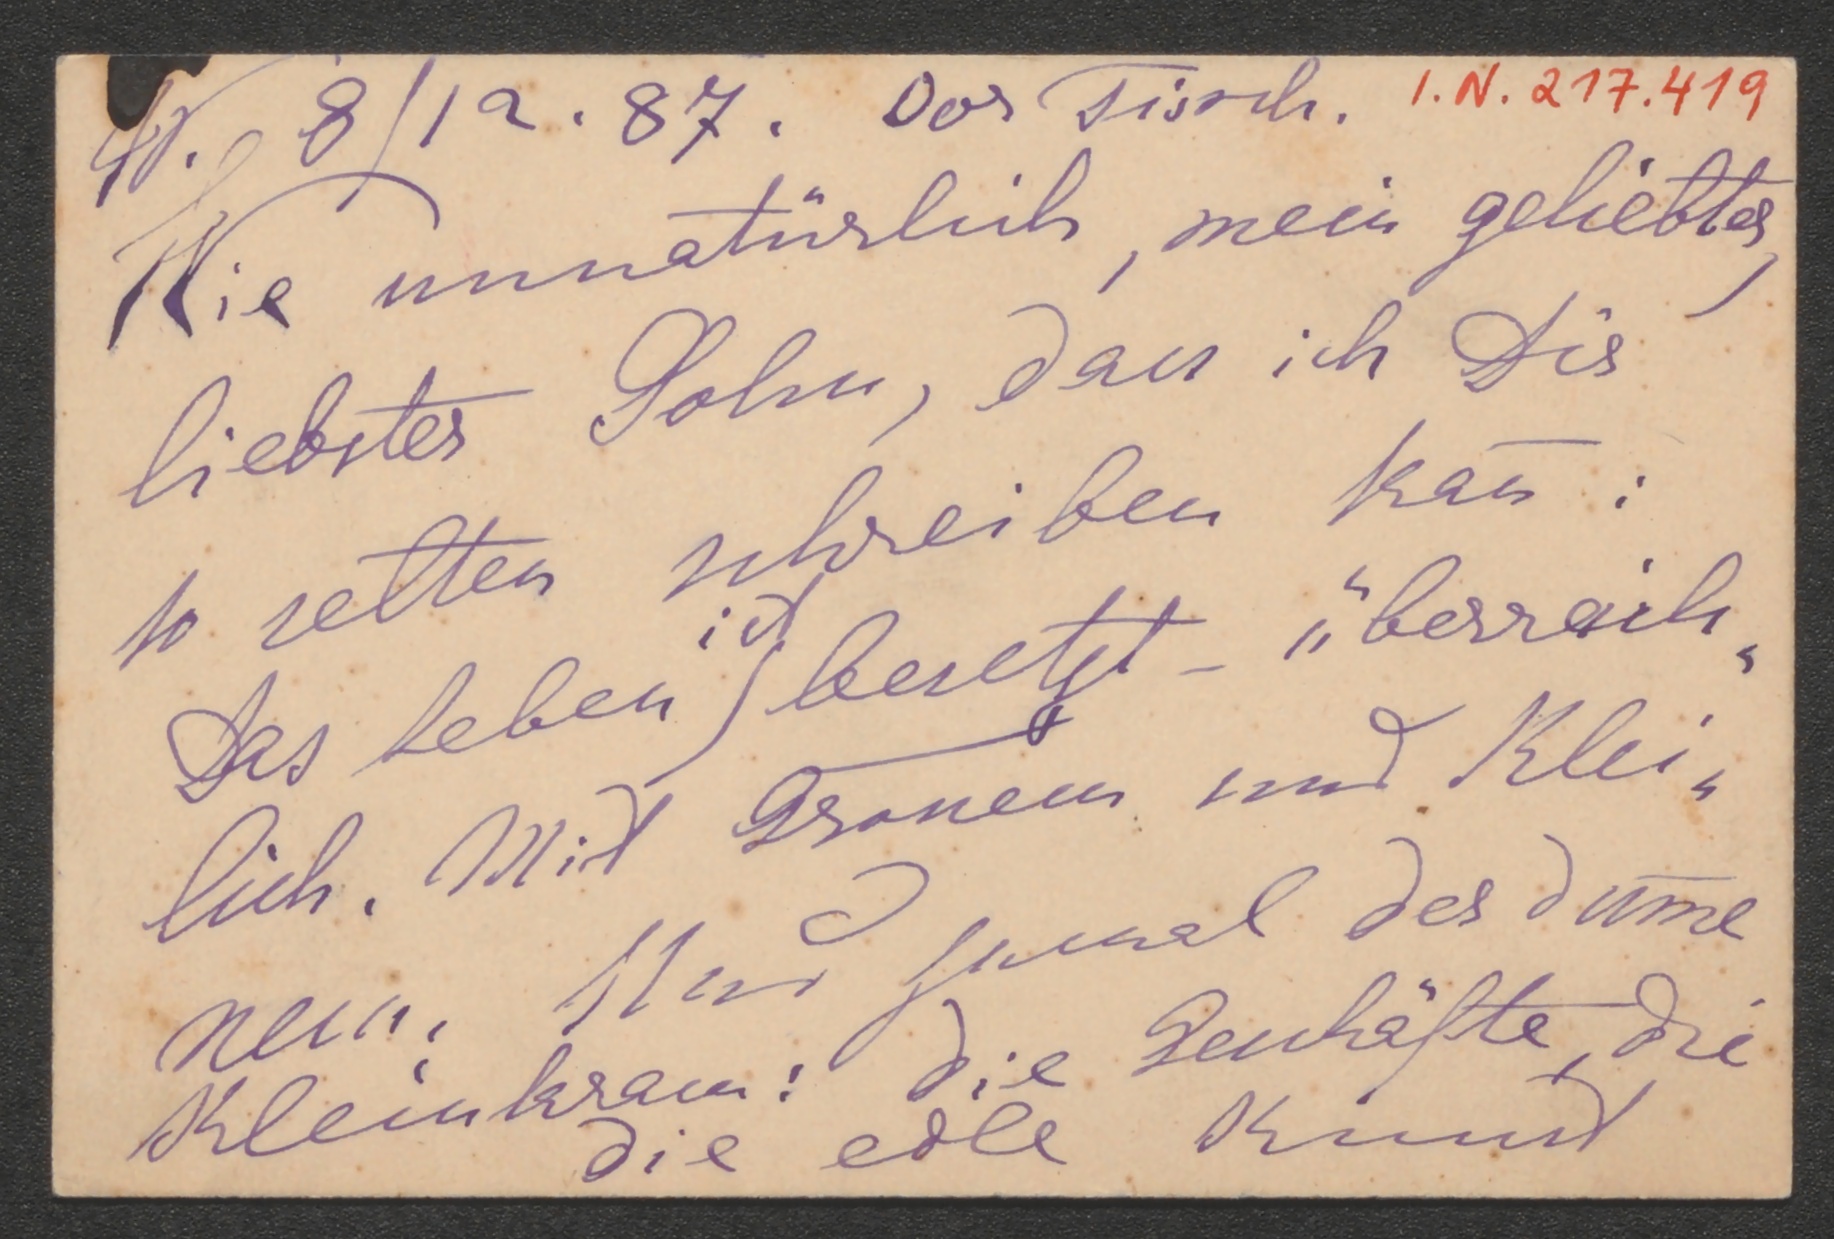 W. 8/12.87. Vor Tisch. I.N. 217.419
Wie unnatürlich, mein geliebter,
liebster Sohn, dass ich Dir
so selten schreiben kan̄:
Das Leben ist besetzt – überreich„
lich. Mit Grossem und Klei„
nem. Und zumal der dum̄e
Kleinkram: die Geschäfte, die
die edle Kunst